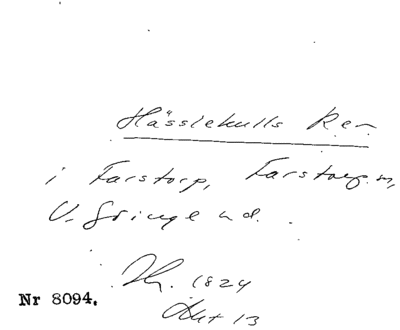 Hässlekulls Ren
i Farstorp, Farstorp sn,
V. Göinge hd.
Th. 1824
Akt 13
Nr 8094.